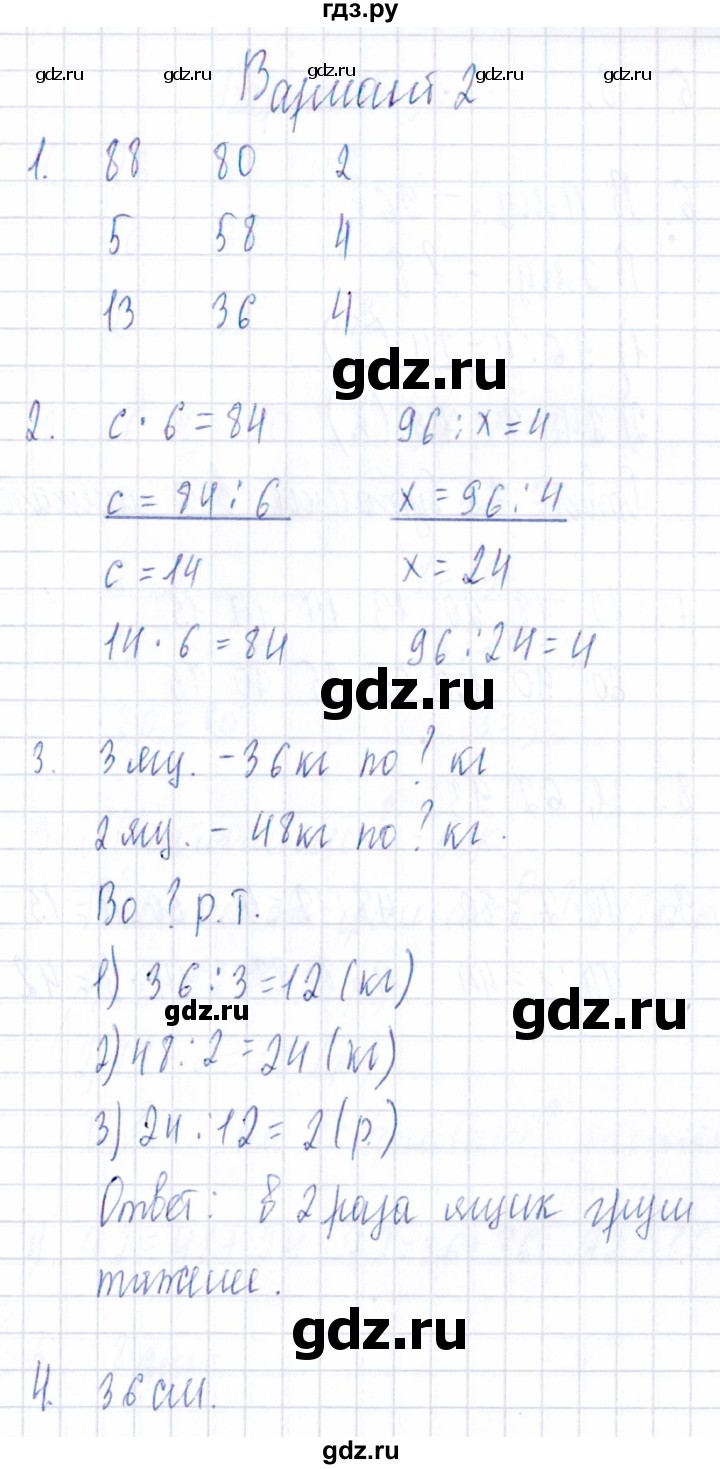 гдз.ру
gdz.ru gdz.ru gdz.ru gdz.ru gdz.ru
Вариант 2
1. 88 80 2
5 58 4
13 36 4
gdz.ru
2. c · 6 = 84 96 : x = 4
c = 84 : 6 x = 96 : 4
c = 14 x = 24
14 · 6 = 84 96 : 24 = 4
gdz.ru
3. 3 ящ. - 36 кг по ? кг
2 ящ. - 48 кг по ? кг.
Во ? р. т.
1) 36 : 3 = 12 (кг)
gdz.ru gdz.ru
2) 48 : 2 = 24 (кг)
3) 24 : 12 = 2 (р.)
Ответ: в 2 раза ящик груш
тяжелее.
gdz.ru
4. 36 см.
gdz.ru